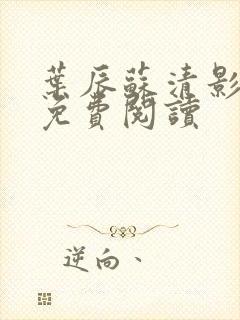 葉辰蘇清影
免費閱讀
逆向、